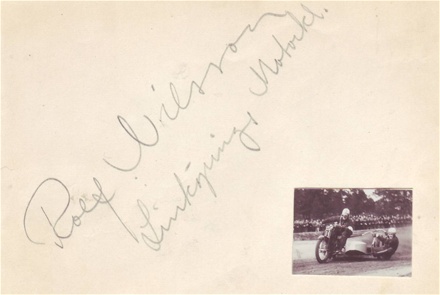 Rolf Nilsson
Linköpings Motorkl.